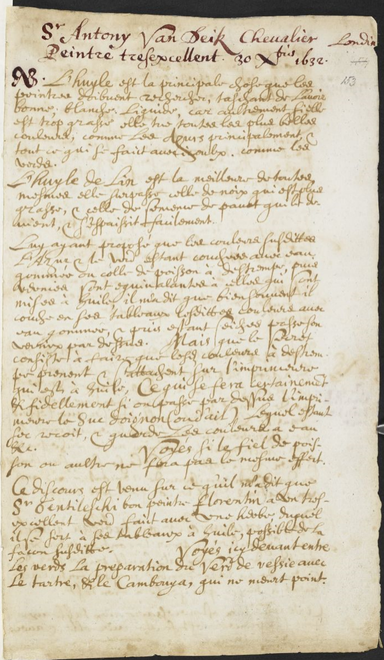 Sr Antony Van Deik Chevalier Londin
Peintre tresexcellent. 30 Xbris 1632.
NB. L'huyle est la principale chose que les
peintres doibvent rechercher, taschant de l'avoir
bonne, blanche, liquide, car aultrement si elle
est trop grasse elle tue toutes les plus belles
couleurs, comme les azurs principalement &
tout ce qui se fait avec iceulx. comme les
verds.
L'huyle de Lin est la meilleure de toutes
mesmes elle surpasse celle de noix qui est plus
grasse, & celle de semence de pavot qui le de-
vient, & s'espaissit facilement.
Luy ayant proposé que les couleurs susdittes
L'azur & le verd estant couchées avec eau
gommée ou colle de poisson à destrempe, puis
vernies sont equivalantes à celles qui sont
mises à huile, il m'a dit que bien souvent il
couche en ses tableaux lesdites couleurs avec
eau gommée, & puis estant seiches passe son
vernix par dessus. Mais que le secret
consiste à faire que lesd couleurs à destrem-
pe prenent & s'attachent sur l'imprimeure
qui est à huile. Ce qui se fera certainement
& fidellement si on passe par dessus l'impri-
meure le suc d'oignon Lequel estant
sec reçoit, & garde les couleurs à eau
&c. Voyes si le fiel de pois-
son ou aultre ne fera pas le mesme effect.
Ce discours est venu sur ce qu'il m'a dit que
Sr Gentileschi bon peintre florentin a un tres-
excellent verd fait avec une herbe duquel
il se sert à ses tableaux à huile, possible de la
façon susditte. Voyes icy devant entre
les verds La preparation du Verd de vessie avec
Le tartre, & le Cambouya, qui ne meurt point.